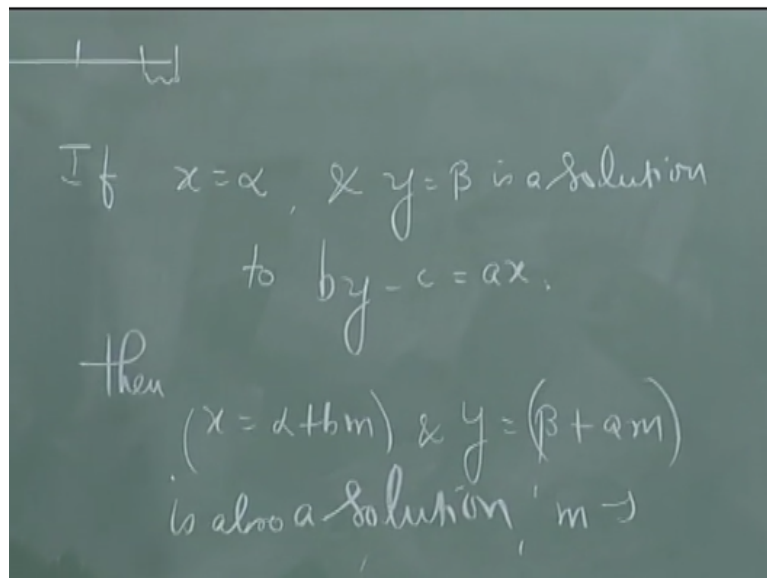 If x = α, & y = β is a solution
to by - c = ax.
then
(x = α + bm) & y = (β + am)
is also a solution, m